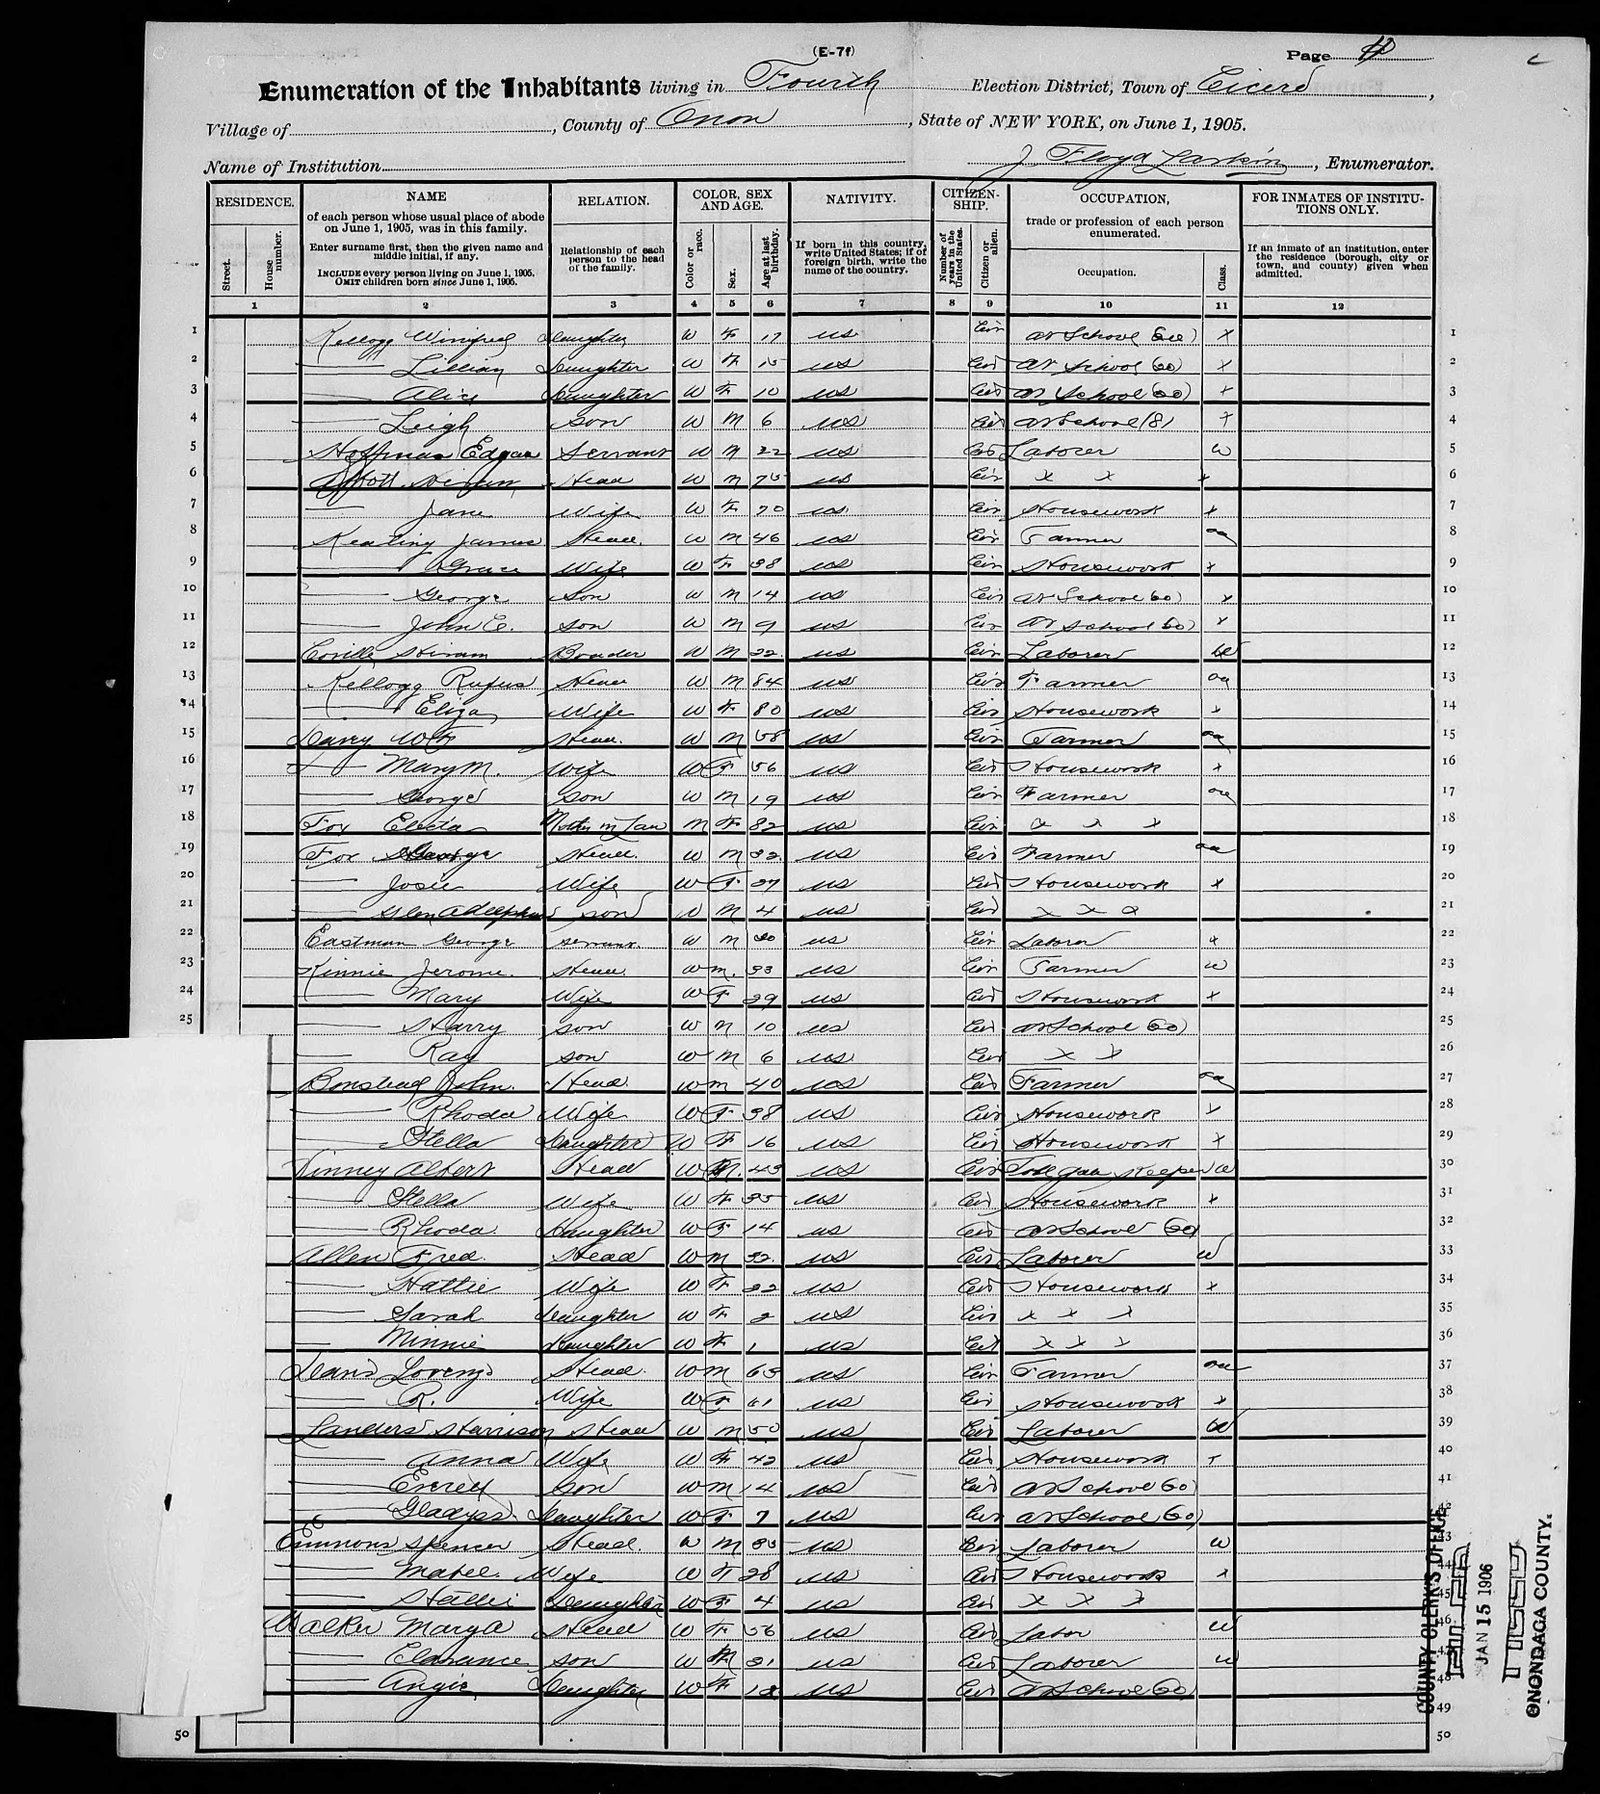 (E-7f)
Page
Enumeration of the Inhabitants living in Fourth Election District, Town of Cicero,
Village of , County of Onon , State of NEW YORK, on June 1, 1905.
Name of Institution J Floyd Larkin, Enumerator.
RESIDENCE. NAME RELATION. COLOR, SEX AND AGE. NATIVITY. CITIZEN-SHIP. OCCUPATION, FOR INMATES OF INSTITU-TIONS ONLY.
Street. House number. of each person whose usual place of abode on June 1, 1905, was in this family. Enter surname first, then the given name and middle initial, if any. INCLUDE every person living on June 1, 1905. OMIT children born since June 1, 1905. Relationship of each person to the head of the family. Color or race. Sex. Age at last birthday. If born in this country, write United States; if of foreign birth, write the name of the country. Number of years in the United States. Citizen or alien. trade or profession of each person enumerated. Occupation. Class. If an inmate of an institution, enter the residence (borough, city or town, and county) given when admitted.
1 2 3 4 5 6 7 8 9 10 11 12
1 Kellogg Winifred Daughter W F 17 US Cit at School x 1
2 Lillian Daughter W F 15 US Cit at School (60) x 2
3 Alice Daughter W F 10 US Cit at School (60) x 3
4 Leigh son W M 6 US Cit at School (8) x 4
5 Hoffman Edgar Servant W M 22 US Cit Laborer W 5
6 Abbott Hiram Head W M 75 US Cit x x x 6
7 Jane Wife W F 70 US Cit Housework x 7
8 Keating James Head W M 46 US Cit Farmer oa 8
9 Grace Wife W F 38 US Cit Housework x 9
10 George Son W M 14 US Cit at School 60) x 10
11 John E. son W M 9 US Cit at School 60) x 11
12 Hiram Boarder W M US Cit Laborer W 12
13 Kellogg Rufus Head W M 84 US Cit Farmer oa 13
14 Eliza Wife W F 80 US Cit Housework x 14
15 W M 58 US Head Cit Farmer oa 15
16 Mary M. Wife W F 56 US Cit Housework x 16
17 George son W M 19 US Cit Farmer 17
18 Fox Electa Mother in Law F 82 US Cit x x x 18
19 Fox George Head W M 32 US Cit Farmer oa 19
20 Josie Wife W F 27 US Cit Housework x 20
21 Glen Adelphus son W M 4 US Cit x x x 21
22 Eastman George servant W M 30 US Cit Laborer x 22
23 Kinnie Jerome Head W M. 33 US Cit Farmer W 23
24 Mary Wife W F 29 US Cit Housework x 24
25 Harry son W M 10 US Cit at School 60) 25
Ray son W M 6 US Cit x x 26
Bonstead John Head W M 40 US Cit Farmer oa 27
Rhoda Wife W F 38 US Cit Housework x 28
Stella Daughter W F 16 US Cit Housework x 29
Kinney Albert Head W M. US Cit Toll gate Keeper W 30
Stella Wife W F 35 US Cit Housework x 31
Rhoda Daughter W F 14 US Cit at School 60) 32
Allen Fred Head W M 32 US Cit Laborer W 33
Hattie Wife W F 22 US Cit Housework x 34
Sarah Daughter W F 2 US Cit x x x 35
Minnie Daughter W F 1 US Cit x x x 36
Davis Lorenzo Head W M US Cit Farmer oa 37
R. Wife W F 61 US Cit Housework x 38
Landers Harrison Head W M 50 US Cit Laborer W 39
Anna Wife W F 42 US Cit Housework x 40
son W M 14 US Cit at School 60) 41
Gladyss Daughter W F 7 US Cit at School 60) 42
Emmons Spencer Head W M 35 US Cit Laborer W 43
Mabel Wife W F 28 US Cit Housework x 44
Hallie Daughter W F 4 US Cit x x x 45
Walker Mary A Head W F 56 US Cit Labor W 46
Clarence son W M 21 US Cit Laborer W 47
Angie Daughter W F US Cit at School 60) 48
49
50 50
COUNTY CLERK'S OFFICE
FILED
JAN 15 1906
ONONDAGA COUNTY.